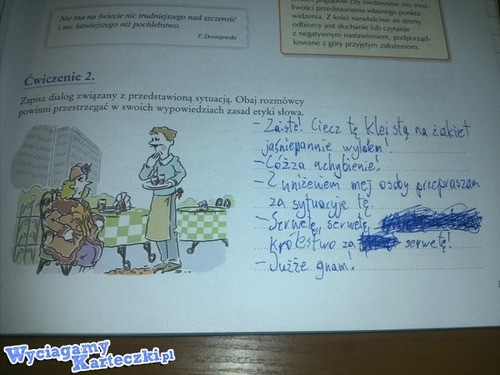 Nie ma na świecie nic trudniejszego nad szczerość
i nic łatwiejszego niż pochlebstwo.
F. Dostojewski
poglądów czy niedawanie mu moż-
liwości przedstawienia własnego punktu
widzenia. Z kolei niewłaściwe ze strony
odbiorcy jest słuchanie lub czytanie
z negatywnym nastawieniem, podporząd-
kowane z góry przyjętym założeniom.
Ćwiczenie 2.
Zapisz dialog związany z przedstawioną sytuacją. Obaj rozmówcy
powinni przestrzegać w swoich wypowiedziach zasad etyki słowa.
- Zaiste! Ciecz tę kleistą na żakiet
jaśniepannie wylałem!
- Cóż za uchybienie!
- Z uniżeniem mej osoby przepraszam
za sytuację tę.
- Serwetę, serwetę,
królestwo za serwetę!
- Jużże gnam!
Wyciagamy
Karteczki.pl